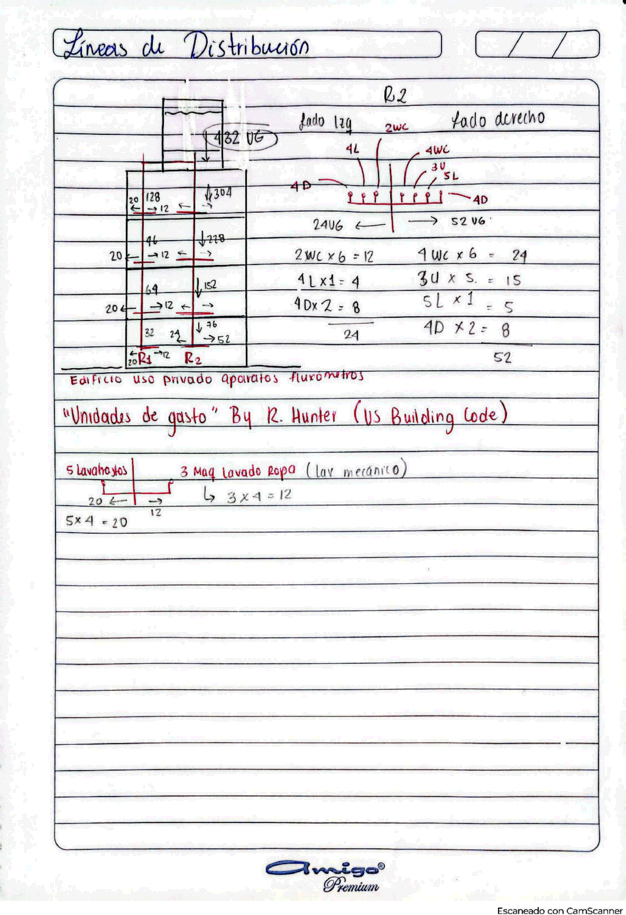 Líneas de Distribución
/ /
R2
Lado Izq 2WC Lado derecho
432 UG
4L 4WC
3U
5L
4D 4D
24UG ← → 52 UG
20 128 ↓304
← →12 ← →
96 ↓228
20← →12 ← →
64 ↓152
20← →12 ← →
32 24 ↓76
← →52
20 R1 →12 R2
2WC x 6 = 12
4L x 1 = 4
4D x 2 = 8
24
4 WC x 6 = 24
3U x 5. = 15
5L x 1 = 5
4D x 2 = 8
52
Edificio uso privado aparatos fluxómetros
"Unidades de gasto" By R. Hunter (US Building Code)
5 Lavahostos 3 Maq lavado Ropa (lav mecánico)
20 ← → ↳ 3 x 4 = 12
12
5x4 = 20
amigo®
Premium
Escaneado con CamScanner